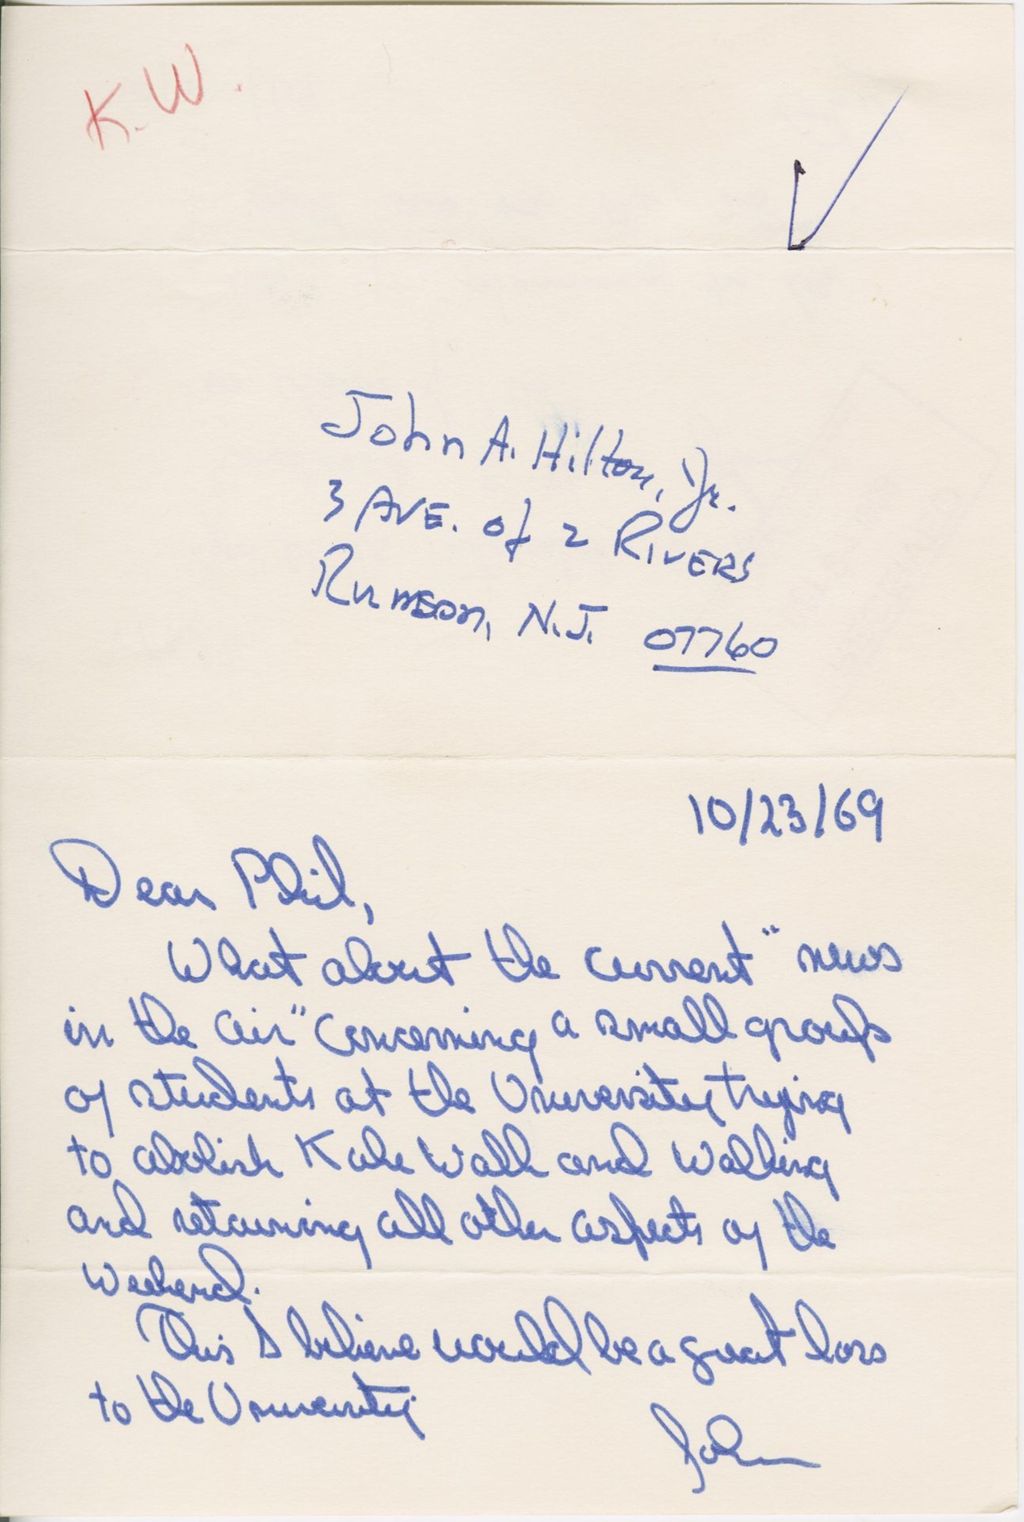 K.W.
John A. Hilton, Jr.
3 AVE. of 2 RIVERS
Rumson, N.J. 07760
10/23/69
Dear Phil,
What about the current "news
in the air" concerning a small group
of students at the University trying
to abolish Kake Walk and Walking
and retaining all other aspects of the
Weekend.
This I believe would be a great loss
to the University.
John